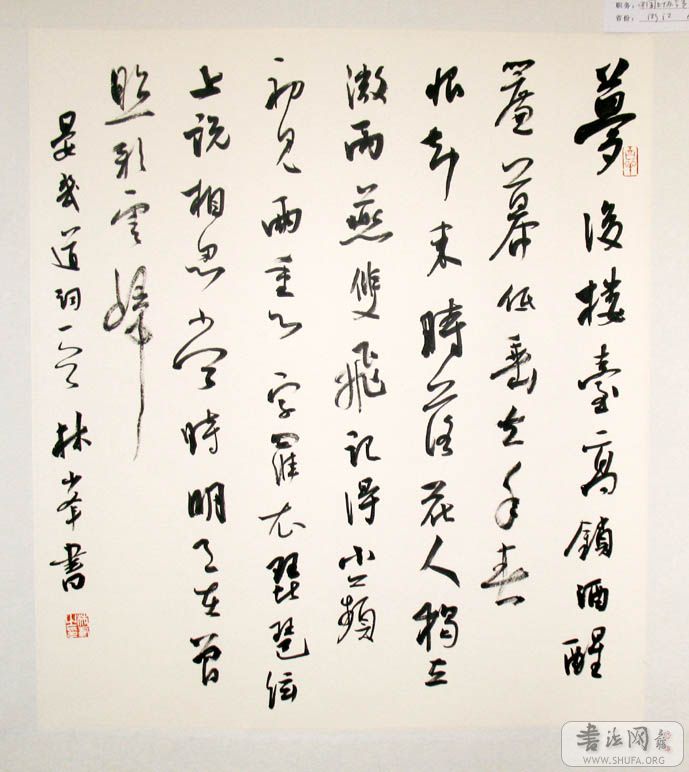 职务：
省份：浙江
夢後楼臺高鎖酒醒
簾幕低垂去年春
恨却来時落花人獨立
微雨燕雙飛記得小蘋
初見兩重心字羅衣琵琶弦
上説相思當時明月在曾
照彩雲歸
晏幾道詞一首 林書
書法网
WWW.SHUFA.ORG